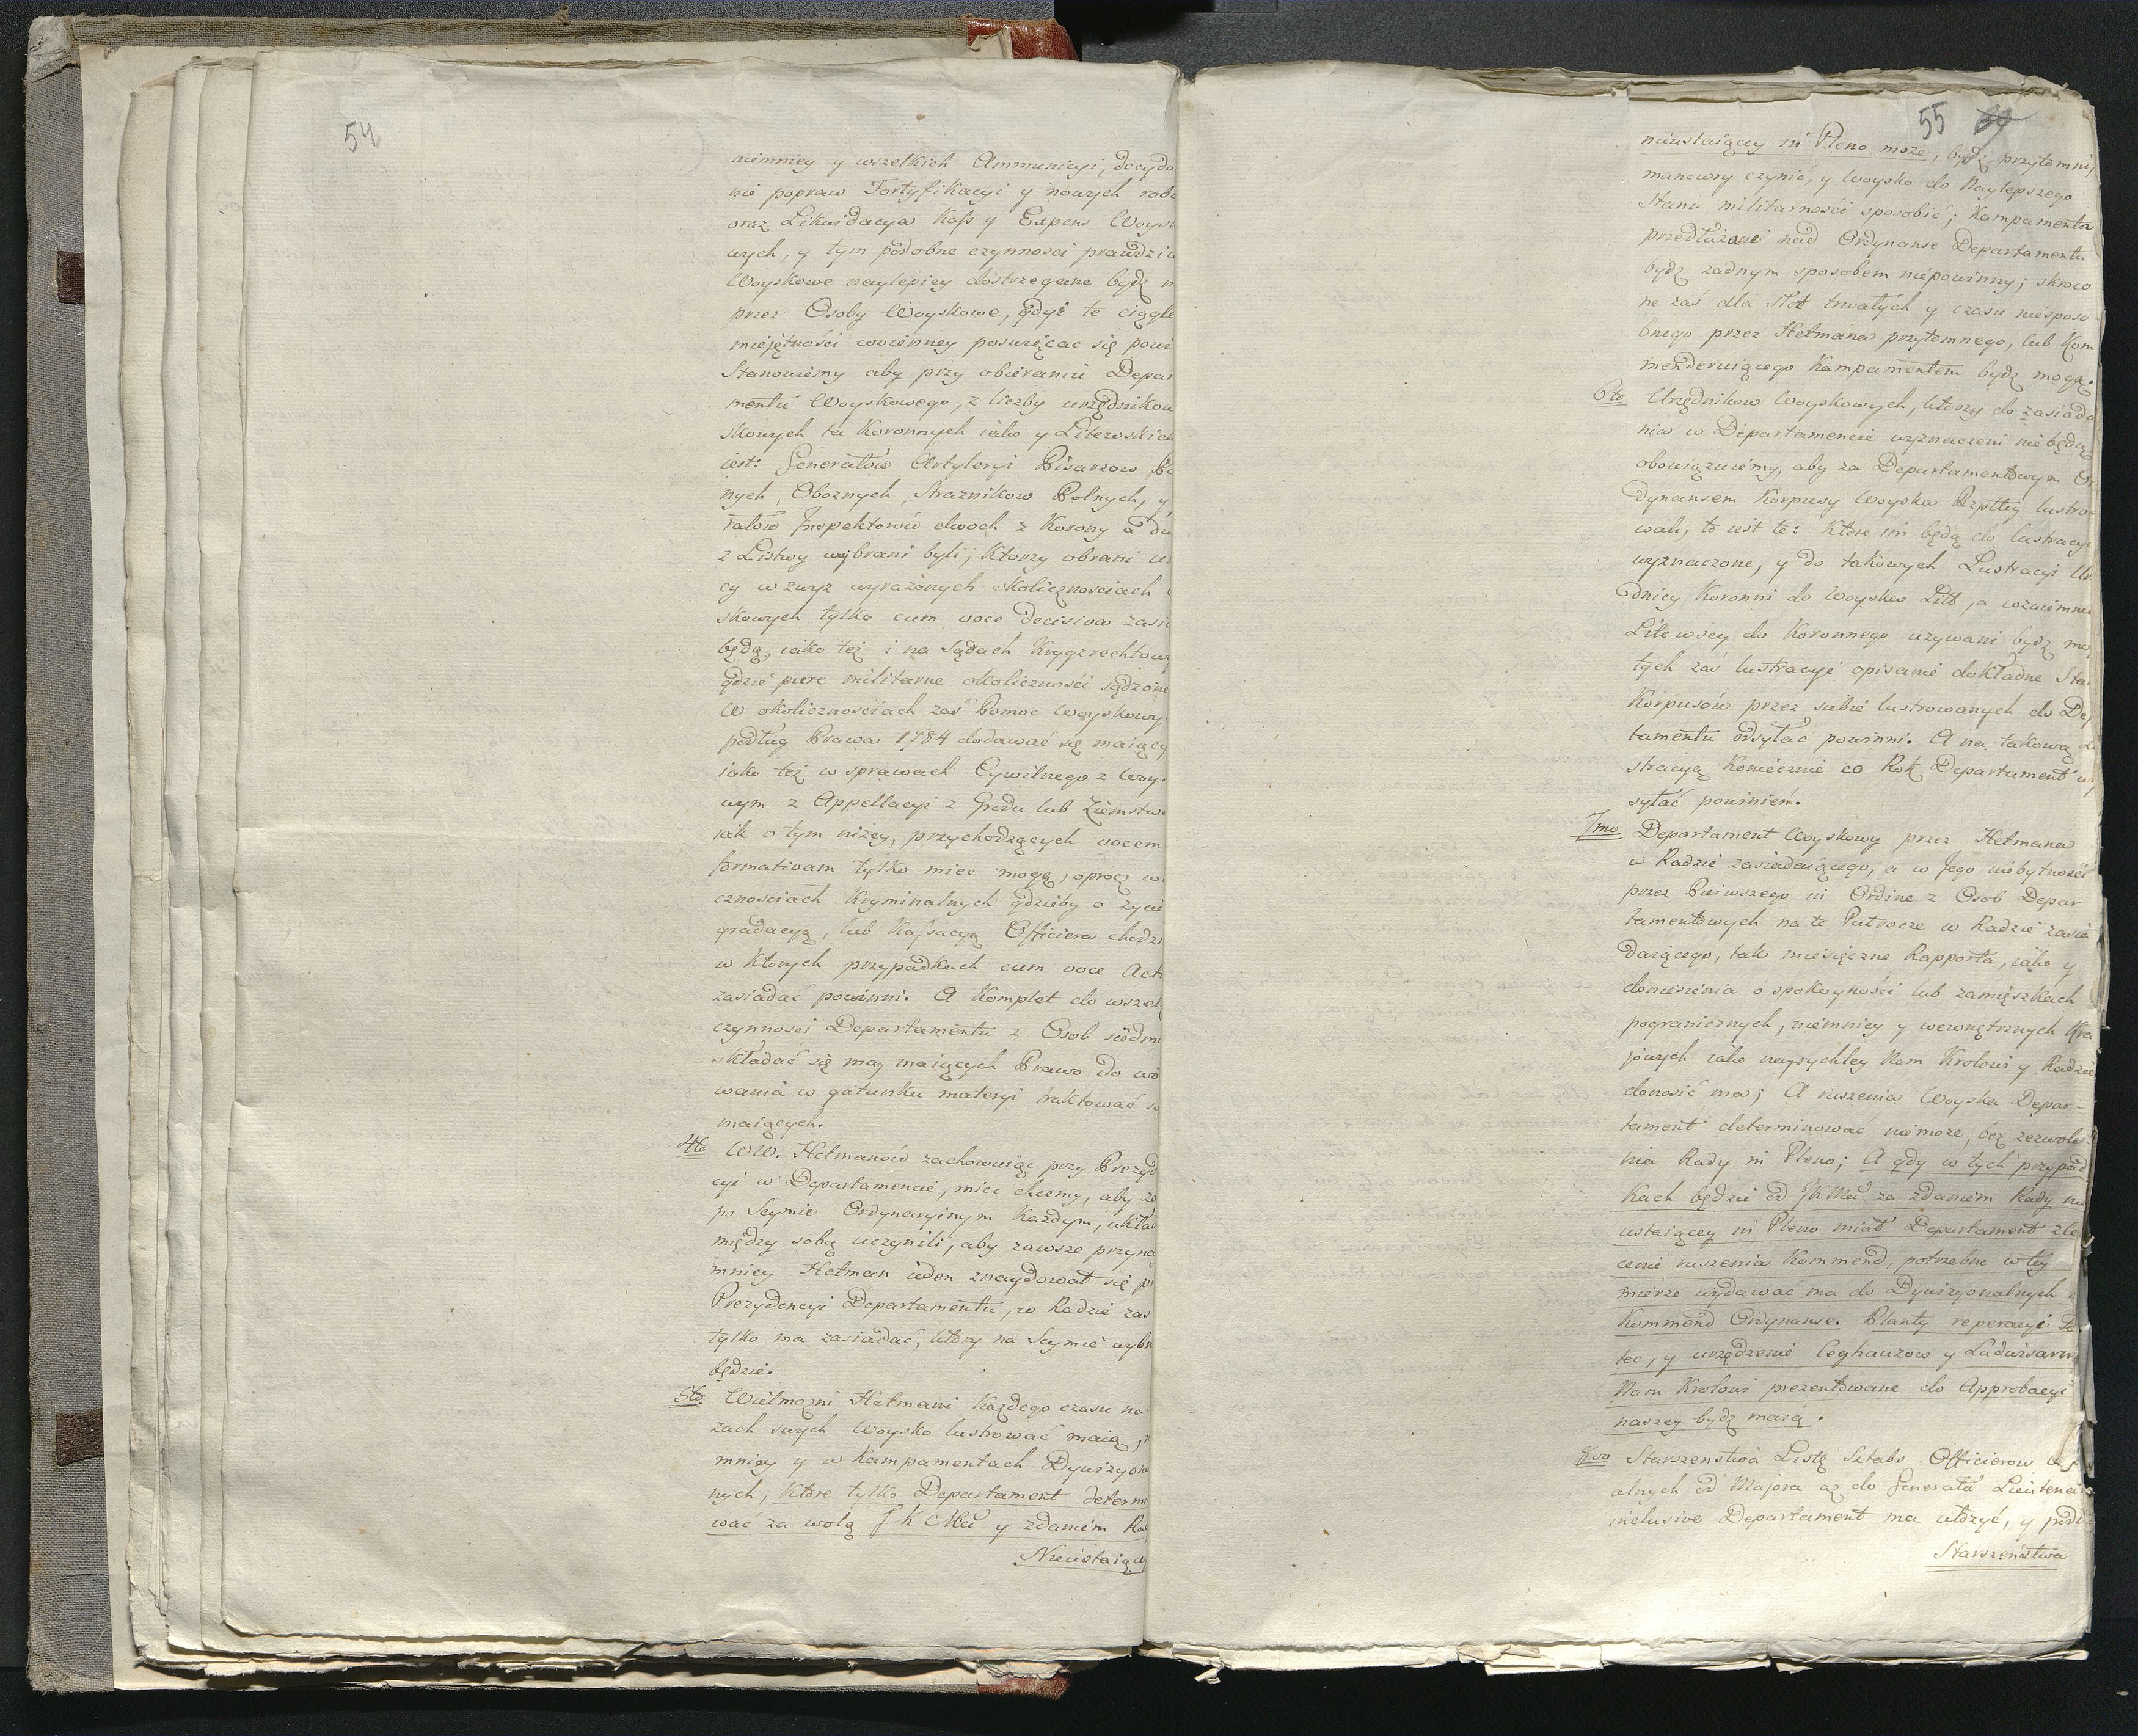 54
niemniey y wszelkich Ammunicyi, decydo
nie popraw Fortyfikacyi y nowych robo
oraz Likwidacya Kass y Expens Woysk
wych, y tym podobne czynnosci prawdziw
Woyskowe naylepiey dostrzegane bydź m
przez Osoby Woyskowe, gdyż te ciągle
mieiętności woienney poswięcac się powi
Stanowiemy aby przy obieraniu Depar
mentu Woyskowego, z liczby urzędnikow
skowych ta Koronnych iako y Litewskich
iest: Generałów Artyleryi Pisarzow Po
nych, Oboznych, Straznikow Polnych, y
rałow Inspektorow dwoch z Korony a dw
z Litwy wybrani byli; Ktorzy obrani u
cy w zwyz wyrażonych okolicznosciach
skowych tylko cum voce decisiva zasia
będą, iako też i na Sądach Krygzrechtow
gdzie pure militarne okoliczności sądzone
W okolicznościach zaś Pomoc Woyskowy
podług Prawa 1784 dodawać się maiący
iako też w sprawach Cywilnego z Woy
wym z Appellacyi z Grodu lub Ziemstw
iak o tym niżey, przychodzących vocem
formativam tylko miec mogą, oprocz w
cznościach Kryminalnych gdzieby o życie
gradacyą, lub Kassacyą Officiera chodzi
w Ktorych przypadkach cum voce Acti
zasiadać powinni. A Komplet do wszel
czynnosci Departamentu z Osob siedmi
składać się ma, maiących Prawo do wo
wania w gatunku materyi traktować się
maiących.
4to WW. Hetmanów zachowuiąc przy Prezyd
cyi w Departamencie, miec chcemy, aby za
po Seymie Ordynaryinym Każdym, układ
między sobą uczynili, aby zawsze przyna
mniey Hetman ieden znaydował się pr
Prezydencyi Departamentu, w Radzie zas
tylko ma zasiadać, ktory na Seymie wybr
będzie.
5to Wielmożni Hetmani Każdego czasu na
zach swych Woysko lustrować maią, n
mniey y w Kampamentach Dywizyon
nych, Ktore tylko Departament determi
wać za wolą J K Mci y zdaniem Ra
Nieustaiącey
55
nieustaiącey in Pleno może, bydź przytomni,
manewry czynić, y Woysko do Naylepszego
Stanu militarności sposobić; Kampamenta
przedłużone nad Ordynanse Departamentu
bydź żadnym sposobem niepowinny; skroco
ne zaś dla słot trwałych y czasu niesposo
bnego przez Hetmana przytomnego, lub Kom
menderuiącego Kampamentem bydź mogą.
6to Urzędnikow Woyskowych, ktorzy do zasiada
nia w Departamencie wyznaczeni nie będą
obowiązuiemy, aby za Departamentowym Or
dynansem Korpusy Woyska Rzpltey lustro
wali, to iest te: Ktore im będą do lustracyi
wyznaczone, y do takowych Lustracyi Urz
dnicy Koronni do Woyska Litt, a wzaiemnie
Litewscy do Koronnego używani bydź mo
tych zaś lustracyi opisanie dokładne Sta
Korpusów przez siebie lustrowanych do Dep
tamentu odsyłać powinni. A na takową Lu
stracyą Koniecznie co Rok Departament w
syłać powinien.
7mo Departament Woyskowy przez Hetmana
w Radzie zasiadaiącego, a w Jego niebytności
przez Pierwszego in Ordine z Osob Depar
tamentowych na te Pułrocze w Radzie zasia
daiącego, tak miesięczne Rapporta, iako y
doniesienia o spokoyności lub zamięszkach
pogranicznych, niemniey y wewnętrznych Kra
jowych iako nayrychley Nam Krolowi y Radzie
donosić ma; A ruszenia Woyska Depar-
tament determinować niemoże, bez zezwole-
nia Rady in Pleno; A gdy w tych przypad
Kach będzie od JKMci za zdaniem Rady nie
ustaiącey in Pleno miał Departament zle
cenie ruszenia Kommend, potrzebne w tey
mierze wydawać ma do Dywizyonalnych
Kommend Ordynanse. Planty reperacyi Fo
tec, y urzędzenie Ceghauzow y Ludwisarni
Nam Krolowi prezentowane do Approbacyi
naszey bydź maią.
8vo Starszenstwa Listę Sztabs Officierow
alnych od Majora aż do Generała Lieutena
inclusive Departament ma ułożyć, y podł
Starszeństwa